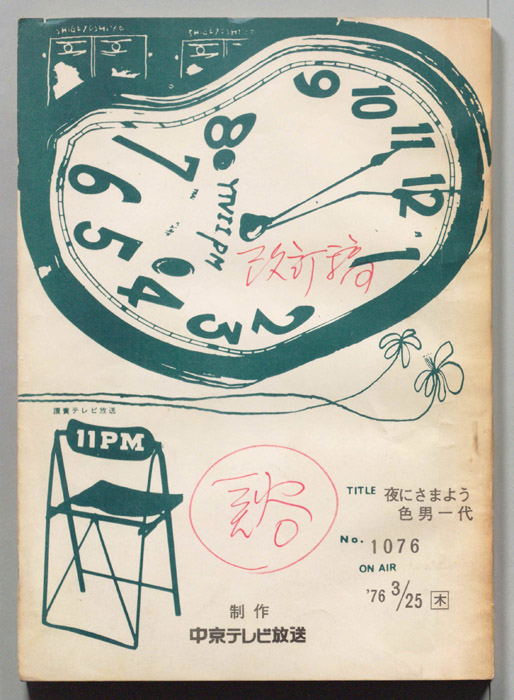 9
10
11
12
1
2
3
4
5
6
7
8
YTV II PM
改訂稿
讀賣テレビ放送
11PM
TITLE 夜にさまよう
色男一代
No. 1076
ON AIR
'76 3/25 木
制作
中京テレビ放送